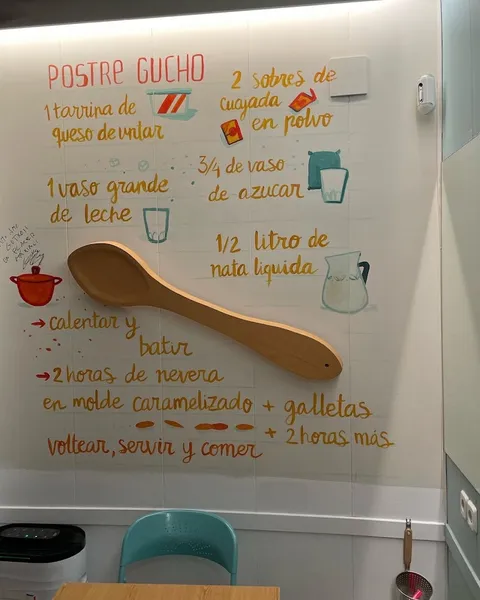 POSTRE GUCHO
1 tarrina de
queso de untar
2 sobres de
cuajada
en polvo
1 vaso grande
de leche
3/4 de vaso
de azucar
1/2 litro de
nata liquida
→ calentar y
batir
→ 2 horas de nevera
en molde caramelizado + galletas
+ 2 horas más
voltear, servir y comer